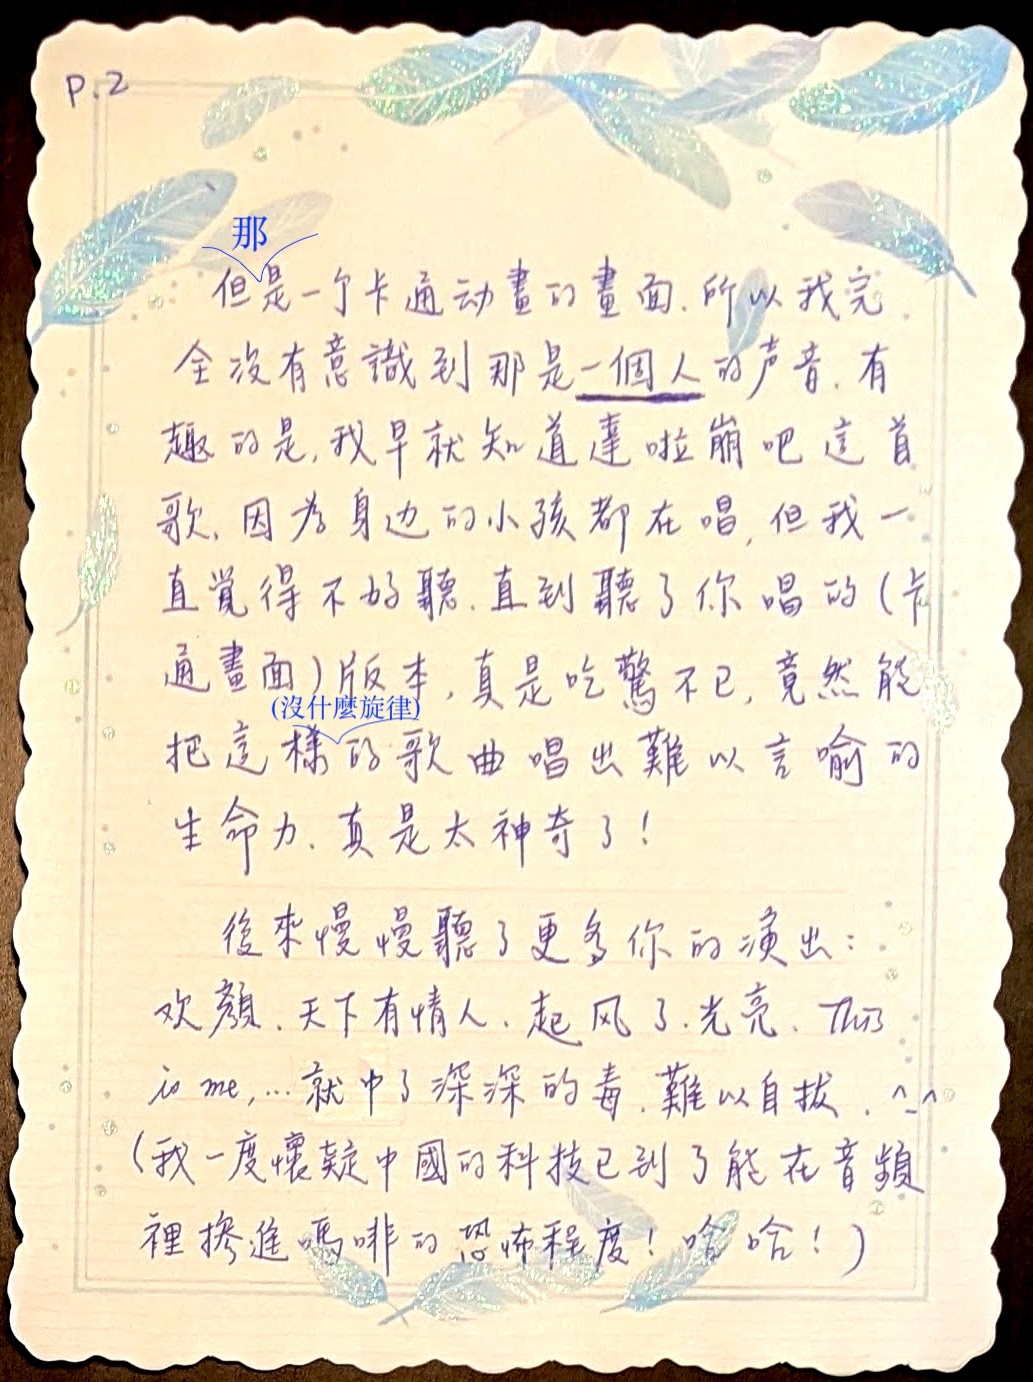 P.2
那
但是一个卡通动畫的畫面.所以我完
全没有意識到那是一個人的声音.有
趣的是,我早就知道達啦崩吧這首
歌.因為身边的小孩都在唱,但我一
直覺得不好聽.直到聽了你唱的(卡
通畫面)版本,真是吃驚不已,竟然能
(沒什麼旋律)
把這樣的歌曲唱出難以言喻的
生命力.真是太神奇了!
後來慢慢聽了更多你的演出:
欢顏.天下有情人.起风了.光亮.This
is me,...就中了深深的毒.難以自拔.^_^
(我一度懷疑中國的科技已到了能在音頻
裡摻進嗎啡的恐怖程度!哈哈!)